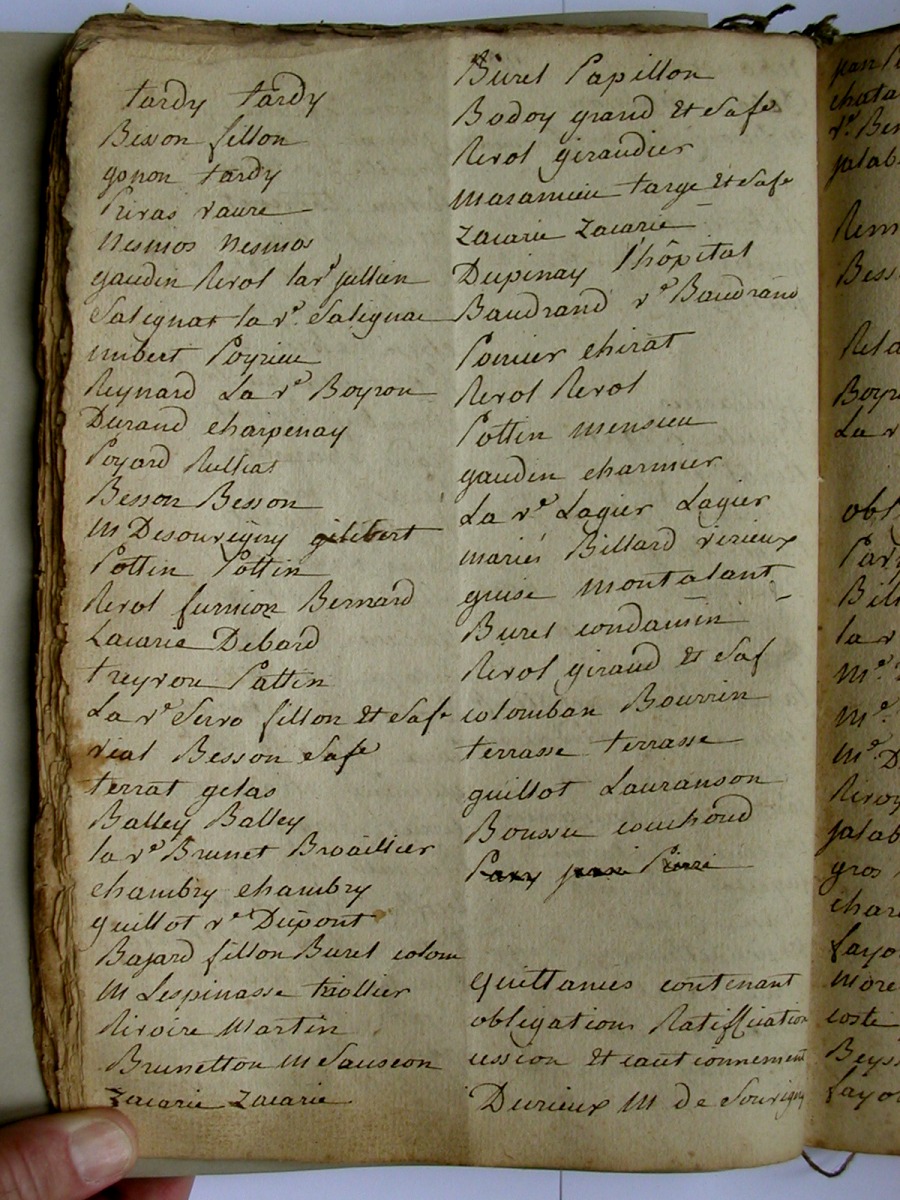 tardy tardy
Besson fillon
gonon tardy
Privas vaure
Nesmos Nesmos
gaudin Revol la vᵉ jullien
Salignat la vᵉ Salignac
imbert Poyrieu
Reynard La vᵉ Boyron
Durand charpenay
Poyard Rullias
Besson Besson
M Desouvigny gilibert
Pottin Pottin
Revol furnion Bernard
Zacarie Debard
treyvou Pattin
La vᵉ Serro fillon Et Safe
vial Besson Safe
terrat gelas
Balley Balley
la vᵉ Brunet Broaillier
chambry chambry
guillot vᵉ Dupont
Bajard fillon Burel colom
M Lespinasse triollier
Rivoire Martin
Brunetton M Sauseon
Zacarie Zacarie
Burel Papillon
Bodoy grand Et Safe
Revol giraudier
targe Et Safe
Zacarie Zacarie
Dupinay l'hôpital
Baudrand vᵉ Baudrand
Poirier chirat
Revol Revol
Pottin mensieu
gaudin charmier
La vᵉ Lagier Lagier
mariés Billard verieux
guise montalant
Burel condamin
Revol giraud Et Saf
colomban Bourrin
terrasse terrasse
guillot Lauranson
Boussu couchoud
quittances contenant
obligations Ratiffication
cession Et cautionnement
Durieux M de Souvigny
obl